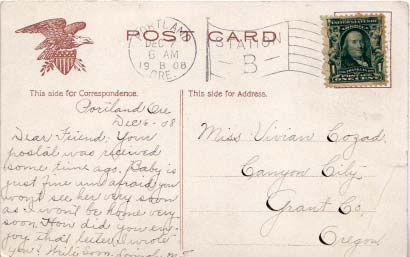 POST CARD
PORTLAND
DEC 7
6 AM
19 08
ORE.
STATION
B
This side for Correspondence.
This side for Address.
Portland Ore
Dec 6-08
Dear Friend: Your
postal was received
some time ago. Baby is
just fine am afraid you
wont see her very soon
as I wont be home very
soon. How did you en-
joy that letter I wrote
you. Write soon.
Miss Vivian Cozad
Canyon City
Grant Co.
Oregon
ONE CENT